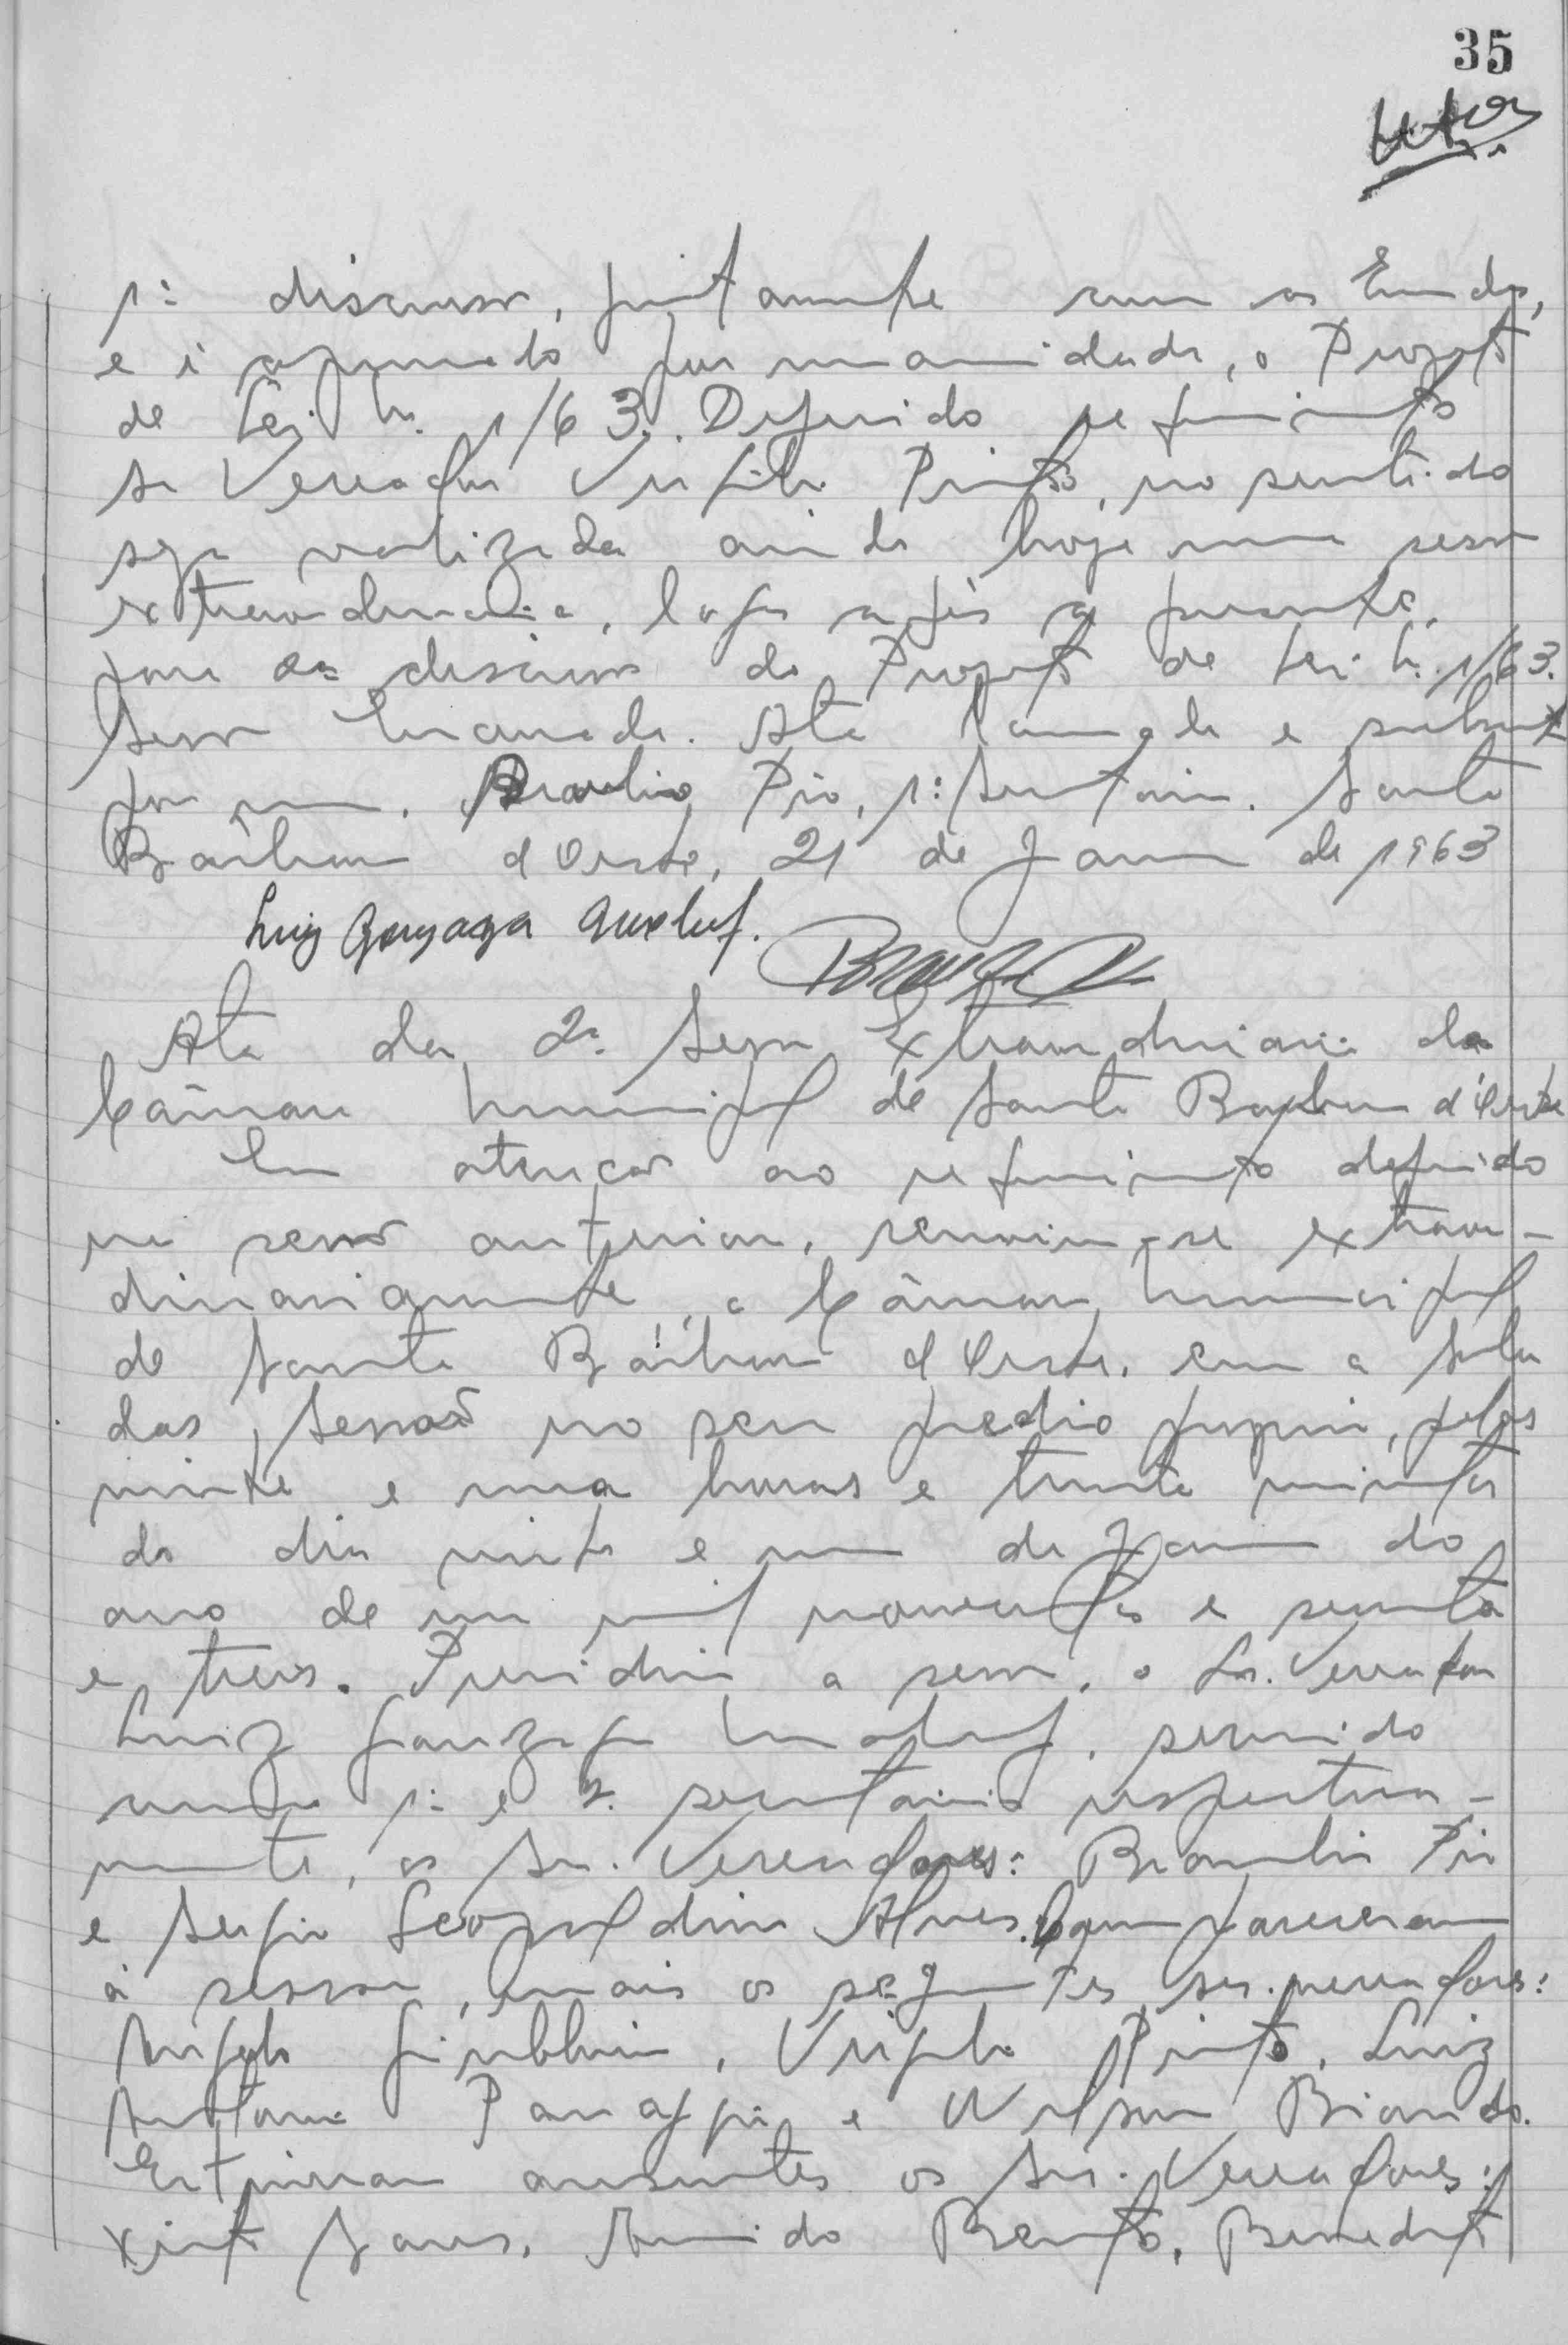 35
1ª discussão, juntamente com as Emendas,
e é aprovado por unanimidade, o Projeto
de Lei n. 1/63. Deferido requerimento
do Vereador Virgilio Pinto, no sentido
seja realizada ainda hoje uma sessão
extraordinaria, logo após a presente,
para 2ª discussão do Projeto de Lei n. 1/63.
Sessão encerrada. Ata lavrada e subscrita
por mim. Braulio Pio, 1º Secretario. Santa
Bárbara d'Oeste, 21 de Janeiro de 1963
Luiz Gonzaga
Ata da 2ª Sessão Extraordinaria da
Câmara Municipal de Santa Barbara d'Oeste
Em atenção ao requerimento deferido
na sessão anterior, reuniu-se extraor-
dinariamente, a Câmara Municipal
de Santa Bárbara d'Oeste, em a Sala
das Sessões no seu predio proprio, pelas
vinte e uma horas e trinta minutos
do dia vinte e um de Janeiro do
ano de um mil novecentos e sessenta
e tres. Presidiu a sessão, o Sr. Vereador
Luiz Gonzaga Maluf, servindo
como 1º e 2º secretarios respectiva-
mente, os Srs. Vereadores: Braulio Pio
e Sergio Leopoldino Alves. Compareceram
à sessão, mais os seguintes srs. vereadores:
Angelo Giubbina, Virgilio Pinto, Luiz
Antonio Panaggio e Wilson Biondo.
Estiveram ausentes os Srs. Vereadores:
Xisto Bento, Benedito